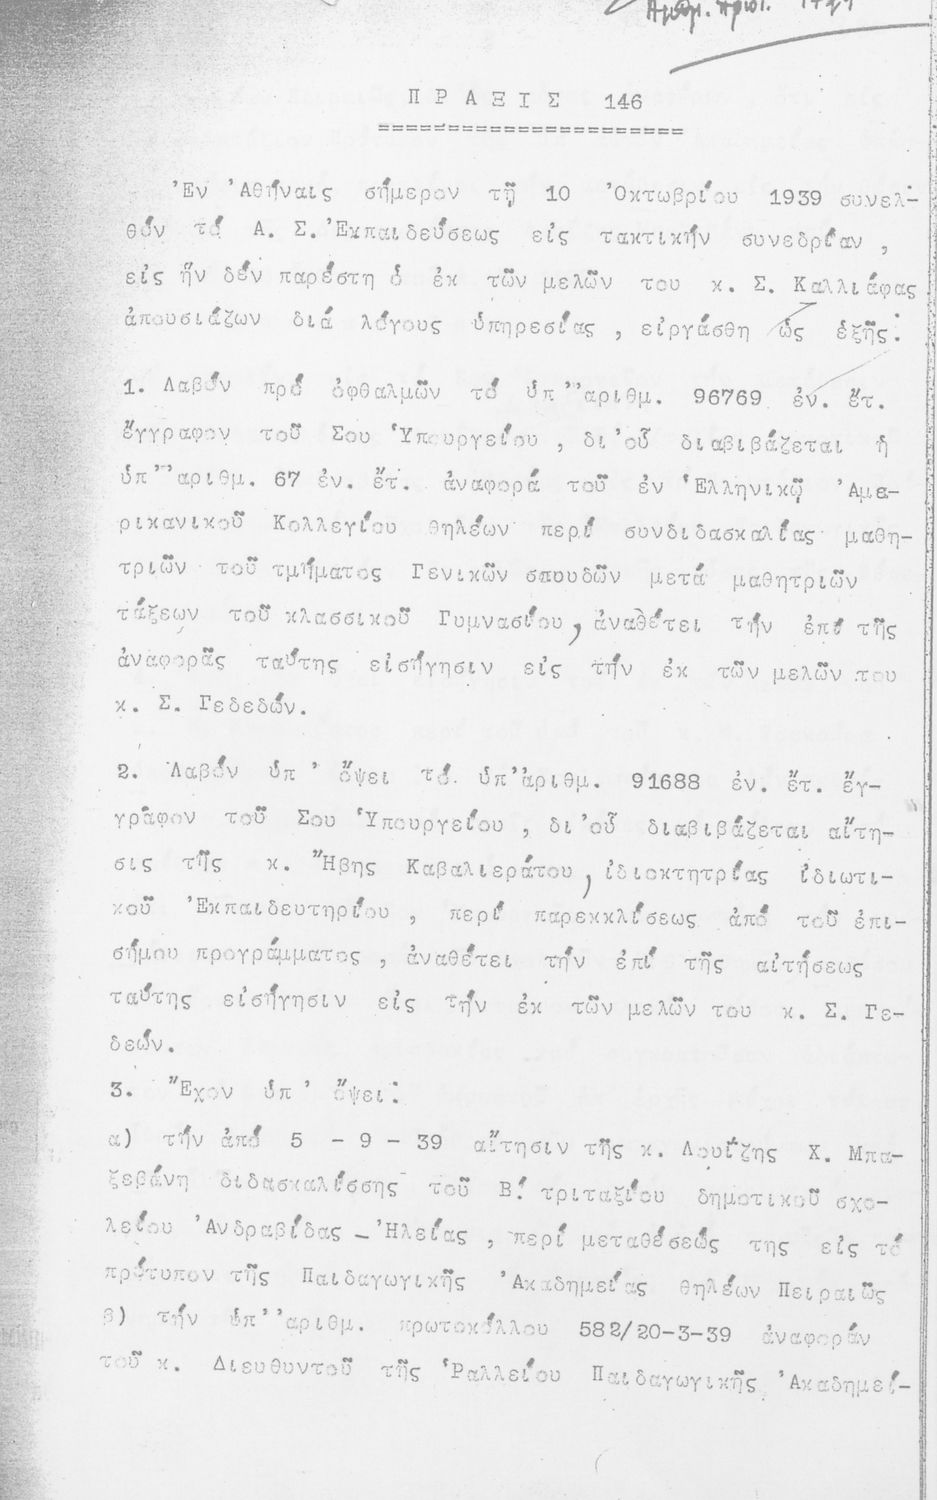 Αριθμ. πρωτ.
ΠΡΑΞΙΣ 146
=======================
Ἐν Ἀθήναις σήμερον τῇ 10 Ὀκτωβρίου 1939 συνελ-
θόν τό Α. Σ. Ἐκπαιδεύσεως εἰς τακτικήν συνεδρίαν ,
εἰς ἥν δέν παρέστη ὁ ἐκ τῶν μελῶν του κ. Σ. Καλλιάφας
ἀπουσιάζων διά λόγους ὑπηρεσίας , εἰργάσθη ὡς ἑξῆς:
1. Λαβόν πρό ὀφθαλμῶν τό ὑπ' ἀριθμ. 96769 ἐν. ἔτ.
ἔγγραφον τοῦ Σου Ὑπουργείου , δι' οὗ διαβιβάζεται ἡ
ὑπ' ἀριθμ. 67 ἐν. ἔτ. ἀναφορά τοῦ ἐν Ἑλληνικῷ Ἀμε-
ρικανικοῦ Κολλεγίου θηλέων περί συνδιδασκαλίας μαθη-
τριῶν τοῦ τμήματος Γενικῶν σπουδῶν μετά μαθητριῶν
τάξεων τοῦ κλασσικοῦ Γυμνασίου, ἀναθέτει τήν ἐπί τῆς
ἀναφορᾶς ταύτης εἰσήγησιν εἰς τήν ἐκ τῶν μελῶν του
κ. Σ. Γεδεδών.
2. Λαβόν ὑπ' ὄψει τό ὑπ' ἀριθμ. 91688 ἐν. ἔτ. ἔγ-
γραφον τοῦ Σου Ὑπουργείου , δι' οὗ διαβιβάζεται αἴτη-
σις τῆς κ. Ἥβης Καβαλιεράτου, ἰδιοκτητρίας ἰδιωτι-
κοῦ Ἐκπαιδευτηρίου , περί παρεκκλίσεως ἀπό τοῦ ἐπι-
σήμου προγράμματος , ἀναθέτει τήν ἐπί τῆς αἰτήσεως
ταύτης εἰσήγησιν εἰς τήν ἐκ τῶν μελῶν του κ. Σ. Γε-
δεών.
3. Ἔχον ὑπ' ὄψει:
α) τήν ἀπό 5 - 9 - 39 αἴτησιν τῆς κ. Λουΐζης Χ. Μπα-
ξεβάνη διδασκαλίσσης τοῦ Β! τριταξίου δημοτικοῦ σχο-
λείου Ἀνδραβίδας - Ἠλείας , περί μεταθέσεώς της εἰς τό
πρότυπον τῆς Παιδαγωγικῆς Ἀκαδημείας θηλέων Πειραιῶς
β) τήν ὑπ' ἀριθμ. πρωτοκόλλου 582/20-3-39 ἀναφοράν
τοῦ κ. Διευθυντοῦ τῆς Ῥαλλείου Παιδαγωγικῆς Ἀκαδημεί-